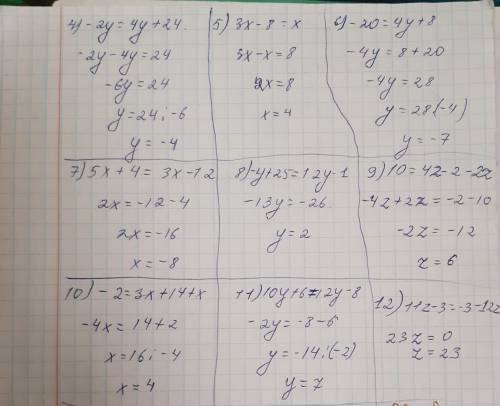 4) -2y = 4y + 24.
-2y - 4y = 24
-6y = 24
y = 24 : -6
y = -4
5) 3x - 8 = x
3x - x = 8
2x = 8
x = 4
6) -20 = 4y + 8
-4y = 8 + 20
-4y = 28
y = 28 (-4)
y = -7
7) 5x + 4 = 3x - 12
2x = -12 - 4
2x = -16
x = -8
8) -y + 25 = 12y - 1
-13y = -26
y = 2
9) 10 = 4z - 2 - 2z
-4z + 2z = -2 - 10
-2z = -12
z = 6
10) -2 = 3x + 14 + x
-4x = 14 + 2
x = 16 : -4
x = 4
11) 10y + 6 = 12y - 8
-2y = -8 - 6
y = -14 : (-2)
y = 7
12) 11z - 3 = -3 - 12z
23z = 0
z = 23